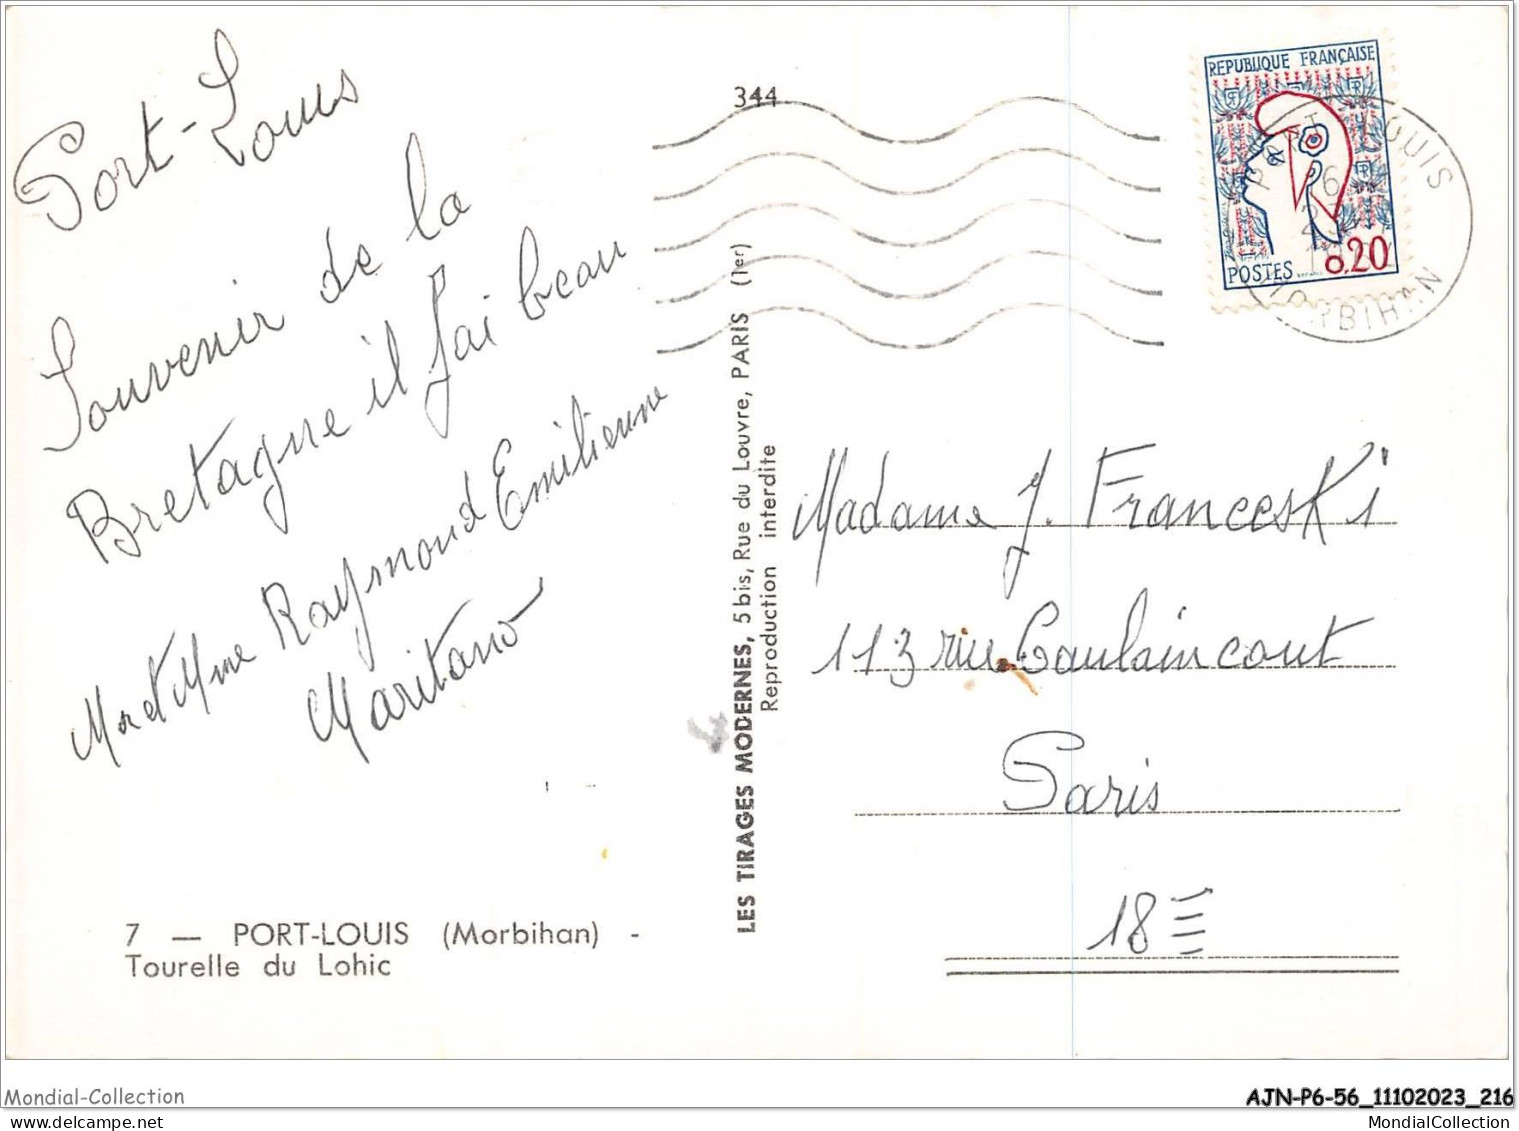 Port-Louis
Souvenir de la
Bretagne il fai beau
M et Mme Raymond Emilienne
Maritano
7 — PORT-LOUIS (Morbihan) -
Tourelle du Lohic
344
LES TIRAGES MODERNES, 5 bis, Rue du Louvre, PARIS (1er)
Reproduction interdite
REPUBLIQUE FRANÇAISE
POSTES 0,20
PORT LOUIS
MORBIHAN
Madame J. Franceski
113 rue Caulaincout
Paris
18E
Mondial-Collection
AJN-P6-56_11102023_216
MondialCollection